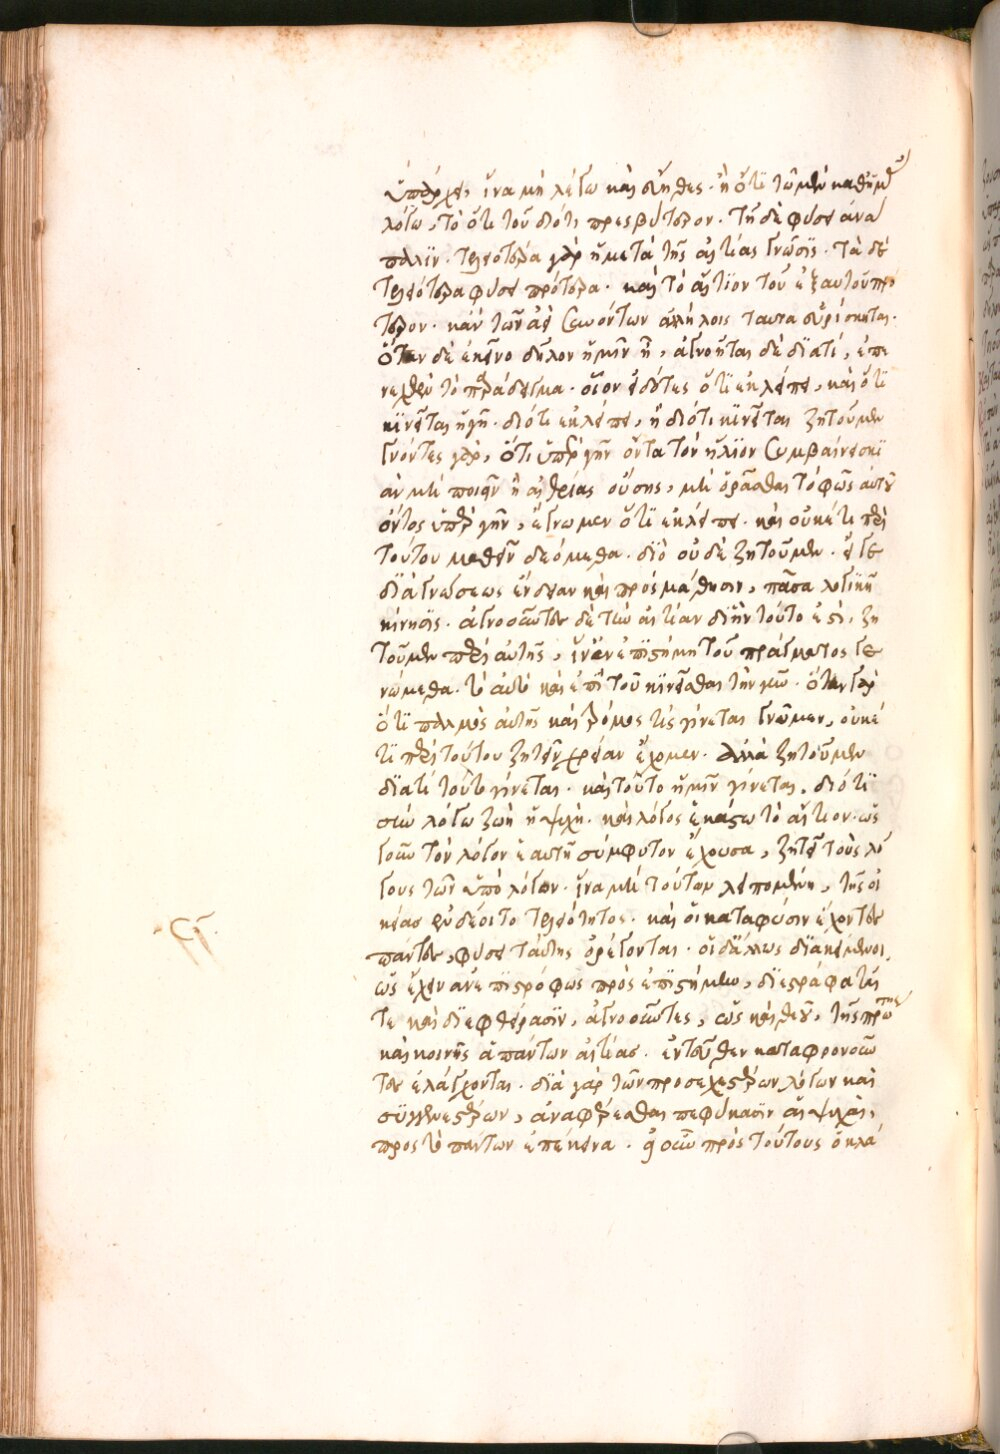 ὑπάρχει, ἵνα μὴ λέγω καὶ συνήθες· ἢ ὅτι τῶ μὲν καθ' ἡμᾶς
λόγω, τὸ ὅτι τοῦ διότι πρεσβύτερον· τῆ δὲ φύσει ἀνά
παλιν· τελεότερα γὰρ ἡ μετὰ τῆς αἰτίας γνῶσις· τὰ δὲ
τελεότερα φύσει πρότερα· καὶ τὸ αἴτιον τοῦ ἐξ αὐτοῦ πρό
τερον· κἀν τῶν ἀεὶ συνόντων ἀλλήλοις ταυτα εὑρίσκηται·
ὅταν δὲ ἐκεῖνο δῆλον ἡμῖν ἦ, ἀγνοῆται δὲ διατί, ἐπι
νελθεῖν τὸ παράδειγμα· οἷον εἰδότες ὅτι ἐκλείπει, καὶ ὅτι
κινεῖται ἡ γῆ· διότι ἐκλείπει, ἢ διότι κινεῖται ζητοῦμεν
γνόντες γὰρ, ὅτι ὑπὲρ γῆν ὄντα τὸν ἥλιον συμβαίνει σκι
ὰν μὴ ποιεῖν ἢ αἰθρίας οὔσης, μὴ ὁρᾶσθαι τὸ φῶς αὐτοῦ
ὄντος ὑπὲρ γῆν, ἔγνωμεν ὅτι ἐκλείπει· καὶ οὐκέτι περὶ
τούτου μαθεῖν δεόμεθα· διὸ οὐδὲ ζητοῦμεν· εἴ γε
διὰ γνώσεως ἔνδειαν καὶ πρὸς μάθησιν, πᾶσα λογικὴ
κίνησις· ἀγνοοῦντες δὲ τὴν αἰτίαν δι' ἣν τοῦτο ἐστὶ, ζη
τοῦμεν περὶ αὐτῆς, ἵν' ἐν ἐπιστήμη τοῦ πράγματος γε
νώμεθα· τὸ αὐτὸ καὶ ἐπὶ τοῦ κινεῖσθαι τὴν γῆν· ὅταν γὰρ
ὅτι παλμὸς αὐτῆς καὶ τρόμος τίς γίνεται γνῶμεν, οὐκέ
τι περὶ τούτου ζητεῖν χρείαν ἔχομεν· ἀλλὰ ζητοῦμεν
διατί τοῦτο γίνεται· καὶ τοῦτο ἡμῖν γίνεται, διότι
σὺν λόγω ζωὴ ἡ ψυχή· καὶ λόγος ἑκάστω τὸ αἴτιον· ὡς
γοῦν τὸν λόγον ἑαυτῆ σύμφυτον ἔχουσα, ζητεῖ τοὺς λό
γους τῶν ὑπὸ λόγον· ἵνα μὴ τούτων λειπομένη, τῆς οἰ
κείας ἐνδέοιτο τελεότητος· καὶ οἱ κατὰ φύσιν ἔχοντες
πάντες, φύσει ταύτης ὀρέγονται· οἱ δ' ἄλλως διακείμενοι,
ὡς ἔχειν ἀνεπιστρόφως πρὸς ἐπιστήμην, διεστράφαται
τε καὶ διεφθάρασιν, ἀγνοοῦντες, ὡς καὶ θεοῦ, τῆς πρώτης
καὶ κοινῆς ἁπάντων αἰτίας· ἐντεῦθεν καταφρονοῦν
τες ἐλέγχονται· διὰ γὰρ τῶν προσεχεστέρων λόγων καὶ
συγγενεστέρων, ἀναφέρεσθαι πεφύκασιν αἱ ψυχαὶ,
πρὸς τὸ πάντων ἐπέκεινα· φασὶν πρὸς τούτους ὀκλά